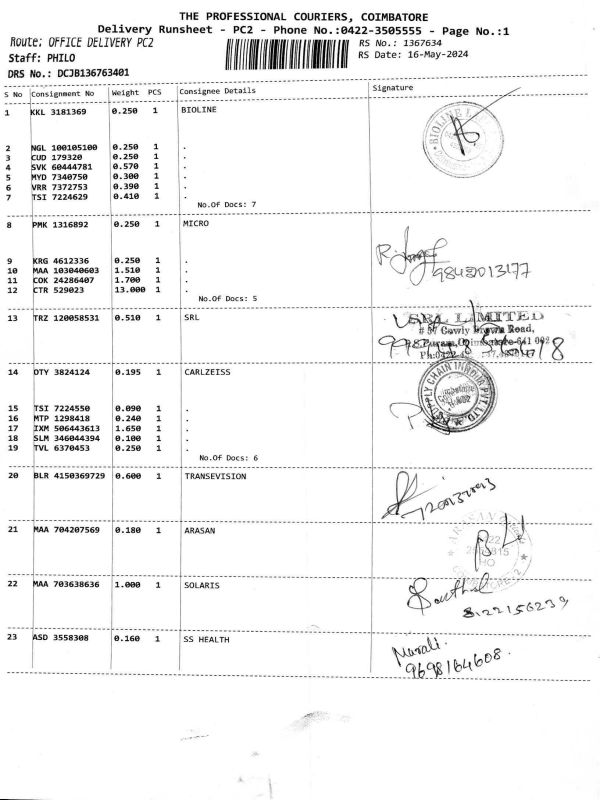 THE PROFESSIONAL COURIERS, COIMBATORE
Delivery Runsheet - PC2 - Phone No.:0422-3505555 - Page No.:1
Route: OFFICE DELIVERY PC2
RS No.: 1367634
Staff: PHILO
RS Date: 16-May-2024
DRS No.: DCJB136763401
S No Consignment No Weight PCS Consignee Details Signature
1 KKL 3181369 0.250 1 BIOLINE
BIOLINE
2 NGL 100105100 0.250 1 .
3 CUD 179320 0.250 1 .
4 SVK 60444781 0.570 1 .
5 MYD 7340750 0.300 1 .
6 VRR 7372753 0.390 1 .
7 TSI 7224629 0.410 1 .
No.Of Docs: 7
8 PMK 1316892 0.250 1 MICRO
9 KRG 4612336 0.250 1 .
10 MAA 103040603 1.510 1 .
11 COK 24286407 1.700 1 .
12 CTR 529023 13.000 1 .
No.Of Docs: 5
13 TRZ 120058531 0.510 1 SRL
SRL LIMITED
# 37 Cowly Brown Road,
14 OTY 3824124 0.195 1 CARLZEISS
SUPPLY CHAIN INDOUR PVT. LTD.
15 TSI 7224550 0.090 1 .
16 MTP 1298418 0.240 1 .
17 IXM 506443613 1.650 1 .
18 SLM 346044394 0.100 1 .
19 TVL 6370453 0.250 1 .
No.Of Docs: 6
20 BLR 4150369729 0.600 1 TRANSEVISION
21 MAA 704207569 0.180 1 ARASAN
22 MAA 703638636 1.000 1 SOLARIS
8122156239
23 ASD 3558308 0.160 1 SS HEALTH
Murali.
9698164608.